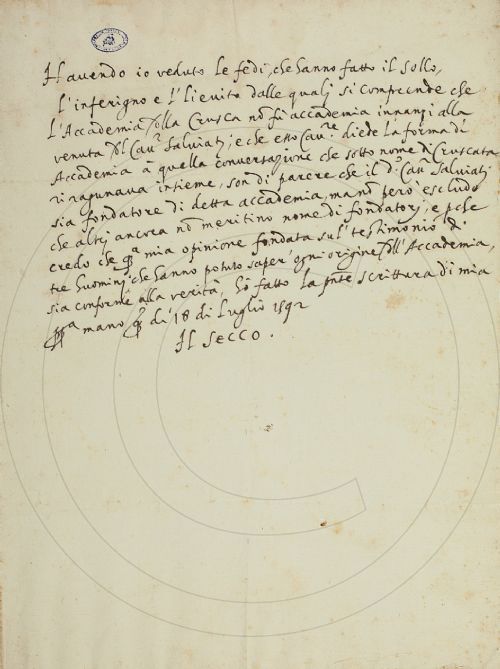 Havendo io veduto le fedi, che hanno fatto il Sollo,
l'inferigno e l'lievito dalle quali si comprende che
l'Accademia della Crusca nō fù accademia innanzi alla
venuta del Cav.r Salviati; e che esso Cav.re diede la forma di
Accademia à quella conversazione che sotto nome di Cruscata
si raunava insieme, son di parere che il d.o Cav.r Salviati
sia fondatore di detta accademia, ma nō però escludo
che altri ancora nō meritino nome di fondatori; e pche
credo che q.a mia opinione fondata sul testimonio di
tre huomini che hanno potuto saper ogni origine dell'Accademia,
sia conforme alla verità, hò fatto la pñte scrittura di mia
ppa mano q.o dì 18 di Luglio 1592
Il Secco.